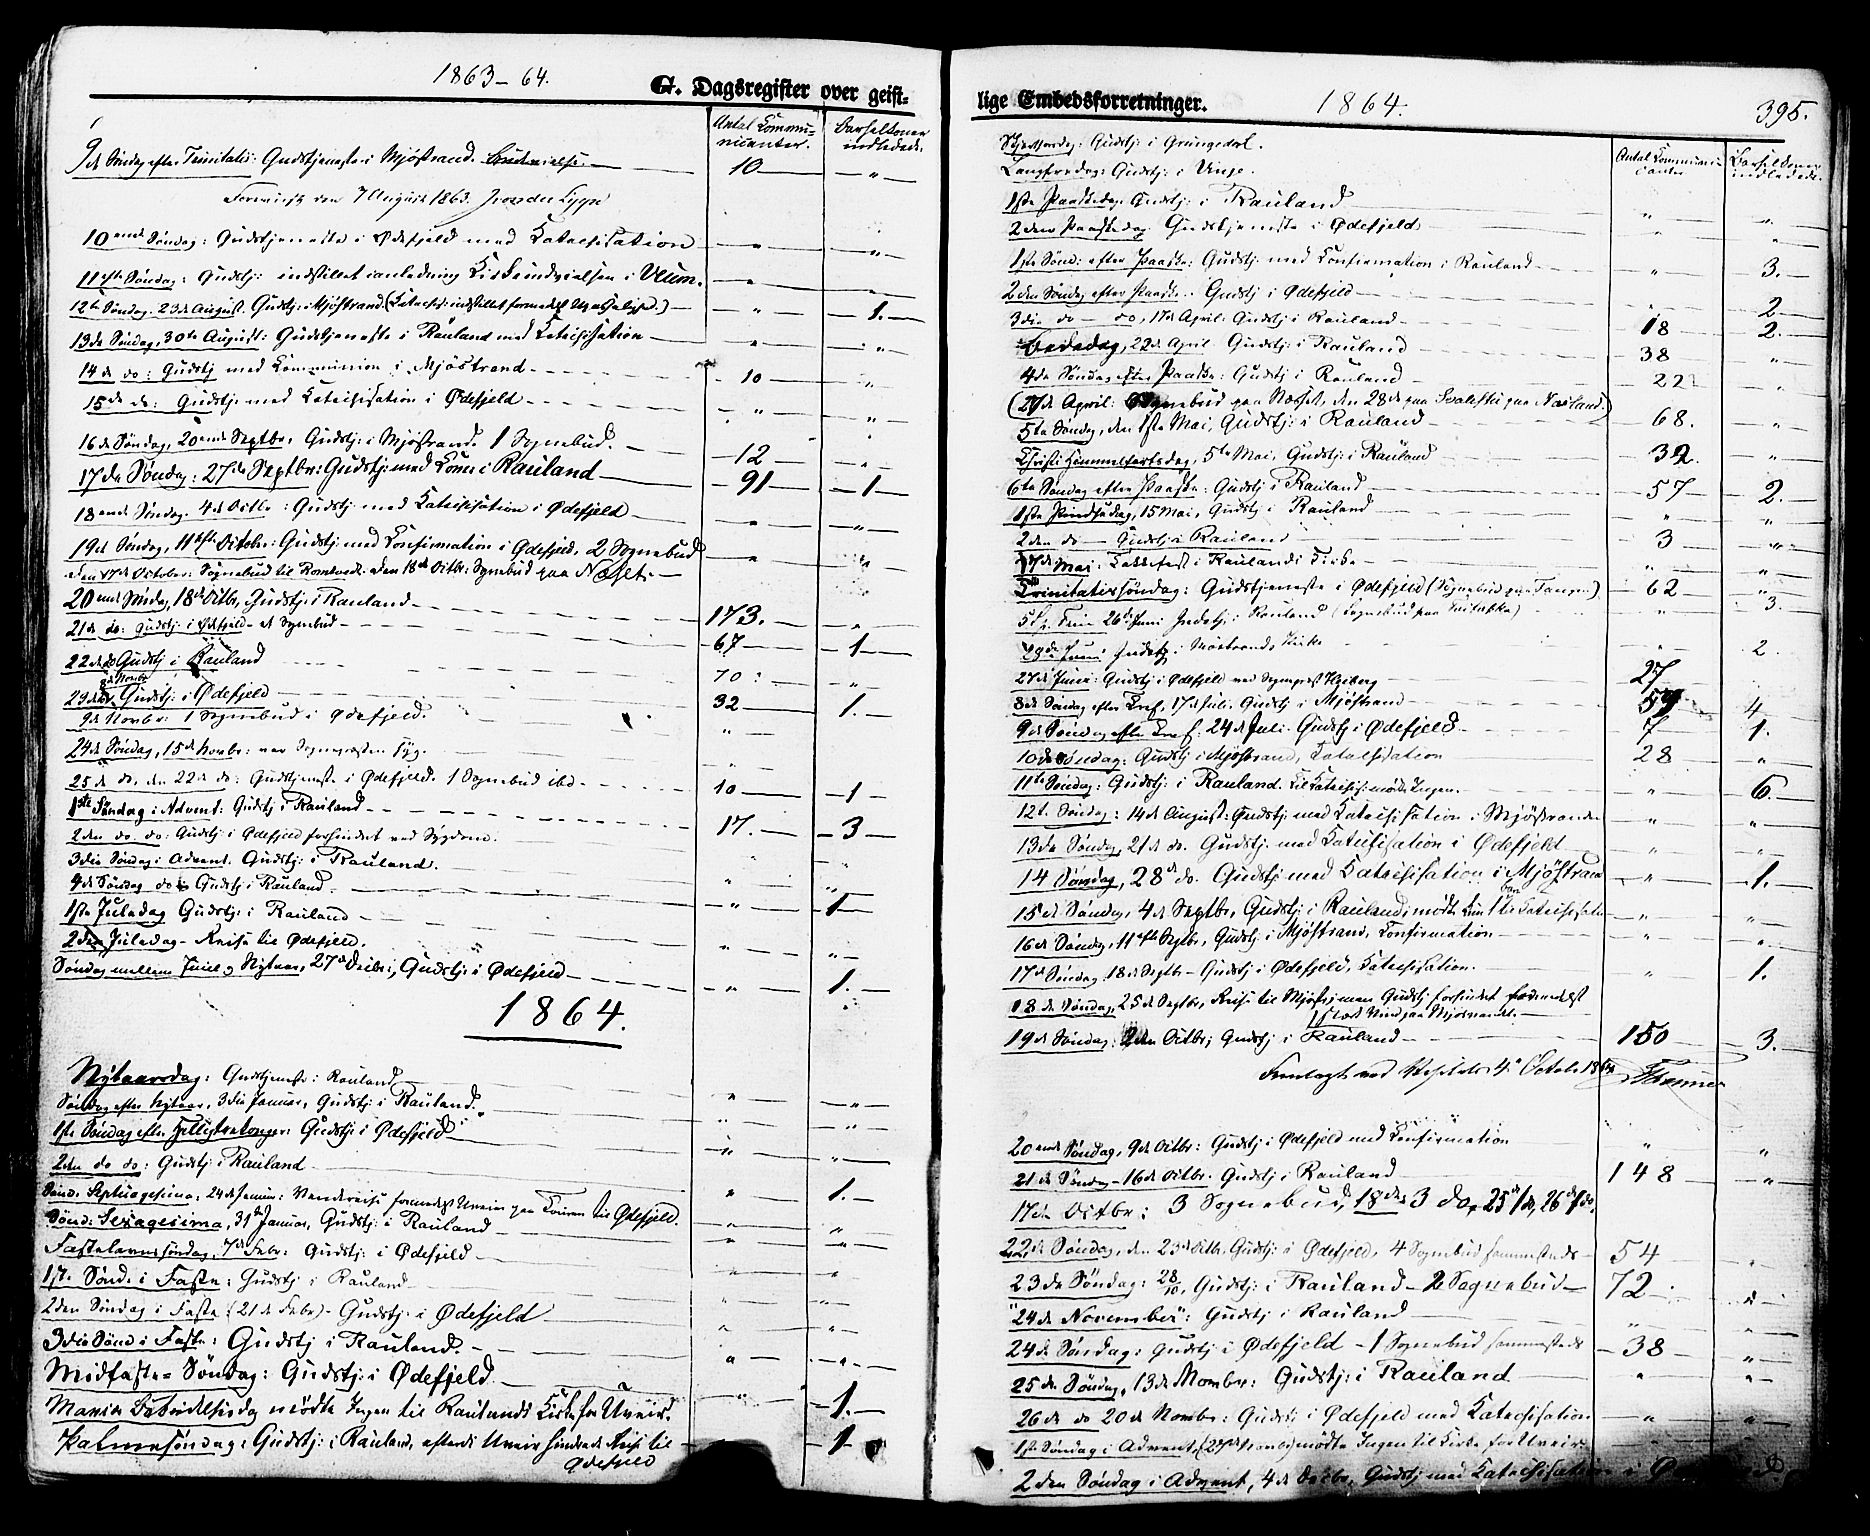 1863-64.
G. Dagsregister over geist-
Antal Communicanter.
Barselkoner indledede.
9de Søndag efter Trinitatis: Gudstjeneste i Mjøstrand. 10 "
den 7 August 1863.
10ende Søndag: Gudstjeneste i Ødefjeld med Katechisation " "
11te Søndag: Gudstj: indstillet i anledning Kirkeindvielsen i " "
12te Søndag. 23de August. Gudstj: i Mjøstrand. (Katechis: indstillet formedelst) " 1.
13de Søndag, 30te August: Gudstjeneste i Rauland med Katechisation " "
14de do: Gudstj med Communion i Mjøstrand. 10 "
15de do: Gudstj: med Katechisation i Ødefjeld " "
16de Søndag, 20ende Septbr, Gudstj: i Mjøstrand. 1 Sognebud. 12 "
17de Søndag: 27de Septbr: Gudstj: med Com: i Rauland 91 1
18ende Søndag. 4de Octbr: Gudstj. med Katechisation i Ødefjeld " "
19de Søndag, 11te October: Gudstj: med Confirmation i Ødefjeld, 2 Sognebud " "
den 17de October: Sognebud til den 18de Octbr: Sognebud paa
20ende Søndag, 18de Octbr, Gudstj: i Rauland 173. "
21de do: Gudstj: i Ødefjeld - et Sognebud 67 1
22de do Gudstj i Rauland 70 "
8de Novbr
23de do Gudstj: i Ødefjeld 32 1.
9de Novbr: 1 Sognebud i Ødefjeld. "
24de Søndag, 15de Novbr: var Sognepresten syg. "
25de do, den 22de do: Gudstjeneste i Ødefjeld. 1 Sognebud ibd 10 1
1ste Søndag i Advent: Gudstj i Rauland 17. 3
2den do. do: Gudstj: i Ødefjeld forhindret ved Sygdom. " "
3die Søndag i Advent. Gudstj: i Rauland. " "
4de Søndag do Gudstj i Rauland. " 1
1ste Juledag Gudstj: i Rauland
2den Juledag - Reise til Ødefjeld. " "
Søndag mellem Juul og Nytaar, 27de Decbr, Gudstj: i Ødefjeld " 1.
1864.
Nytaarsdag: Gudstjeneste: Rauland " "
Søndag efter Nytaar, 3die Januar, Gudstj: i Rauland. " "
1ste Søndag efter Helligtrekonger: Gudstj: i Ødefjeld " "
2den do do: Gudstj: i Rauland " 1.
Sønd. Septuagesima, 24de Januar: formedelst Uveir paa til Ødefjeld. " "
Sønd: Sexagesima, 31te Januar, Gudstj: i Rauland " "
Fastelavnssøndag, 7de Febr: Gudstj: i Ødefjeld " "
1ste Sønd. i Faste: Gudstj i Rauland " "
2den Søndag i Faste (21de Febr) - Gudstj: i Ødefjeld " "
3die Sønd i Faste: Gudstj i Rauland. " "
Midfaste-Søndag: Gudstj: i Ødefjeld " 1.
Mariæ Bebudelsesdag mødte Ingen til Raulands Kirke for Uveir. 1
Palmesøndag: Gudstj: i Rauland, efterdi Uveir hindrede Reise til
Ødefjeld
lige Embedsforretninger.
1864.
395.
Antal Communicanter
Barselkoner indledede.
Skjærtorsdag: Gudstj: i Grungedal.
Langfredag: Gudstj: i Vinje.
1ste Paaskedag. Gudstj: i Rauland " "
2den Paaskedag. Gudstjeneste i Ødefjeld " "
1ste Sønd: efter Paaske: Gudstj: med Confirmation i Rauland " 3.
2den Søndag efter Paaske. Gudstj i Ødefjeld " 2
3die do - do, 17de April: Gudstj: i Rauland 18 2.
Bededag, 22de April Gudstj: i Rauland 38 "
4de Søndag efter Paaske: Gudstj i Rauland 22 "
(27de April: Sognebud paa Næset, den 28de paa)
5te Søndag, den 1ste Mai, Gudstj: i Rauland 68. "
Christi Himmelfartsdag, 5te Mai, Gudstj: i Rauland 32. "
6te Søndag efter Paaske: Gudstj i Rauland 57 2.
1ste Pindsedag, 15 Mai, Gudstj i Rauland " "
2den do - Gudstj i Rauland 3 "
17de Mai: Takkefest i Raulands Kirke " "
Trinitatissøndag: Gudstjeneste i Ødefjeld 62 "
26de Juni Gudstj: i Rauland " 3.
Juni Gudstj. i Møstrands Kirke " 2.
Gudstj: i Ødefjeld ved 27
8de Søndag efter Tref, 17de Juli. Gudstj i Mjøstrand 4
9de Søndag efter Tref: 24de Juli. Gudstj: i Ødefjeld 7 1.
10de Søndag: Gudstj: i Mjøstrand, Katechisation 28 "
11te Søndag: Gudstj: i Rauland. Til Katechis: mødte Ingen. " 6.
12t. Søndag: 14de August: Gudstj: med Katechisation i Mjøstranden " "
13de Søndag, 21de do. Gudstj: med Katechisation i Ødefjeld " "
14 Søndag, 28de do. Gudstj med Katechisation i Mjøstrand " 1.
15de Søndag, 4de Septbr, Gudstj: i Rauland; mødte kun 1 barn til Katechisation " "
16de Søndag, 11te Septbr, Gudstj: i Mjøstrand, Confirmation " "
17de Søndag 18de Septbr - Gudstj: i Ødefjeld, Katechisation. " 1.
18de Søndag, 25de Septbr, Reise til men Gudstj forhindret formedelst
Vind paa Mjøsvandet.
19de Søndag: 2den Octbr; Gudstj: i Rauland 150 3.
Fremlagt ved 4de October 1864
20ende Søndag, 9de Octbr: Gudstj: i Ødefjeld med Confirmation " "
21de Søndag - 16de Octbr. Gudstj: i Rauland 148 "
17de Octbr: 3 Sognebud, 18de 3 do, 25de 1 do, 26de 1 do.
22de Søndag, den 23de Octbr. Gudstj: i Ødefjeld, 4 Sognebud sammesteds 54 "
23de Søndag: 28/10, Gudstj: i Rauland - 2 Sognebud 72 "
"24de November": Gudstj i Rauland " "
24de Søndag: Gudstj i Ødefjeld - 1 Sognebud sammesteds 38 "
25de Søndag, 13de Novbr: Gudstj: i Rauland " "
26de do 20de Novbr: Gudstj: i Ødefjeld med Katechisation " "
1ste Søndag i Advent, mødte Ingen til Kirke for Uveir
2den Søndag i Advent, 4de Decbr, Gudstj: med Katechisation i